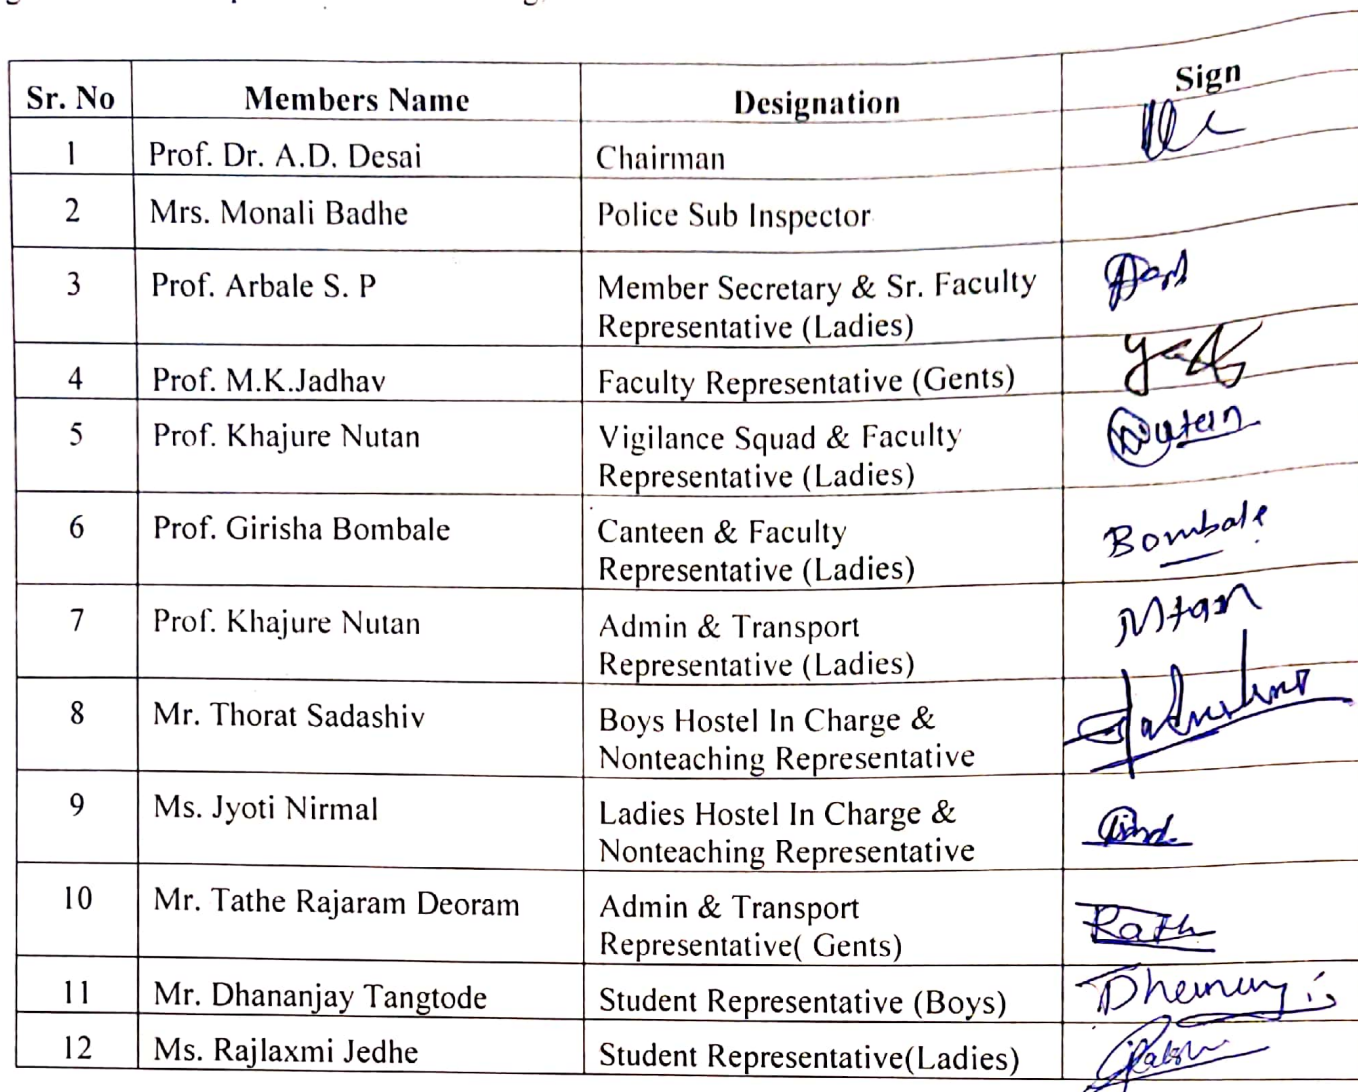 Sr. No Members Name Designation Sign
1 Prof. Dr. A.D. Desai Chairman
2 Mrs. Monali Badhe Police Sub Inspector
3 Prof. Arbale S. P Member Secretary & Sr. Faculty
Representative (Ladies)
4 Prof. M.K.Jadhav Faculty Representative (Gents)
5 Prof. Khajure Nutan Vigilance Squad & Faculty Nutan
Representative (Ladies)
6 Prof. Girisha Bombale Canteen & Faculty Bombale
Representative (Ladies)
7 Prof. Khajure Nutan Admin & Transport
Representative (Ladies)
8 Mr. Thorat Sadashiv Boys Hostel In Charge &
Nonteaching Representative
9 Ms. Jyoti Nirmal Ladies Hostel In Charge &
Nonteaching Representative
10 Mr. Tathe Rajaram Deoram Admin & Transport
Representative( Gents)
11 Mr. Dhananjay Tangtode Student Representative (Boys)
12 Ms. Rajlaxmi Jedhe Student Representative(Ladies)